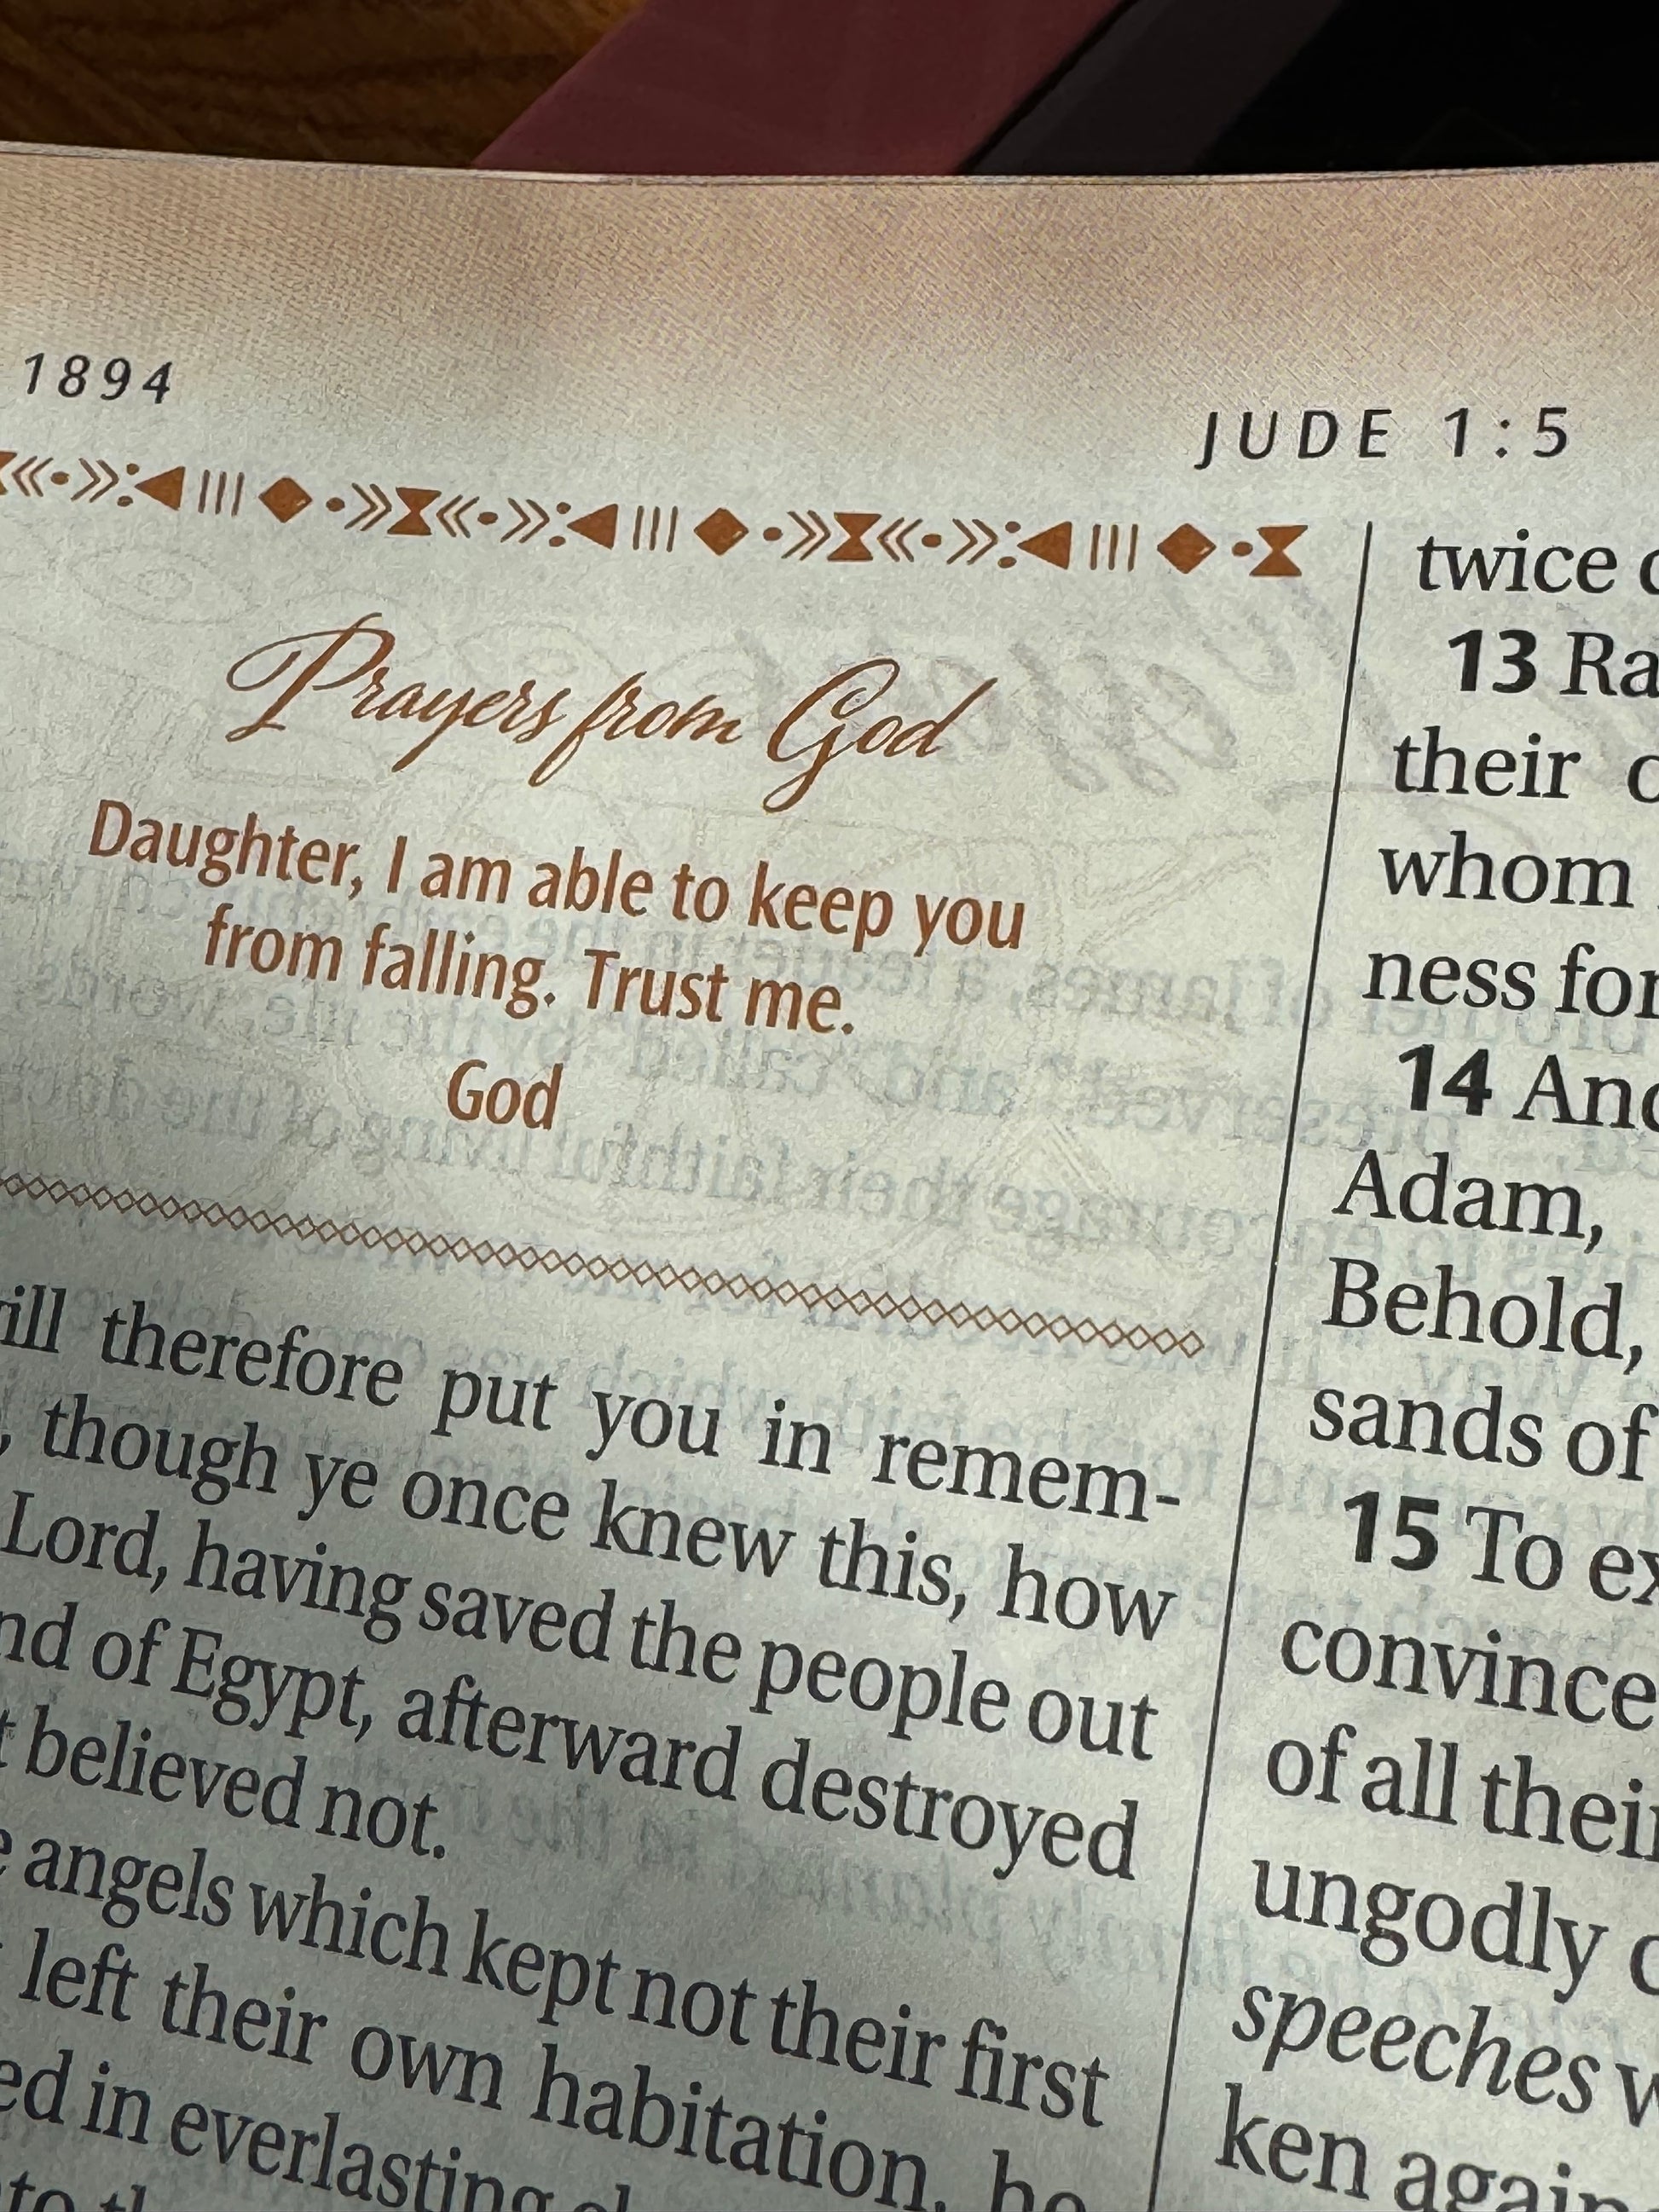 1894
JUDE 1:5
Prayers from God
Daughter, I am able to keep you
from falling. Trust me.
God
therefore put you in remem-
, though ye once knew this, how
Lord, having saved the people out
of Egypt, afterward destroyed
believed not.
angels which kept not their first
left their own habitation, he
in everlasting
twice
13 Ra
their
whom
ness for
14 And
Adam,
Behold,
sands of
15 To ex
convince
of all their
ungodly
speeches
ken again